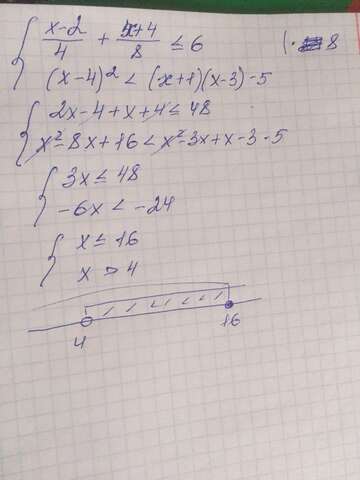 { (x-2)/4 + (x+4)/8 ≤ 6 | · 8
(x-4)² < (x+1)(x-3)-5
{ 2x-4+x+4 ≤ 48
x²-8x+16 < x²-3x+x-3-5
{ 3x ≤ 48
-6x < -24
{ x ≤ 16
x > 4
4 16